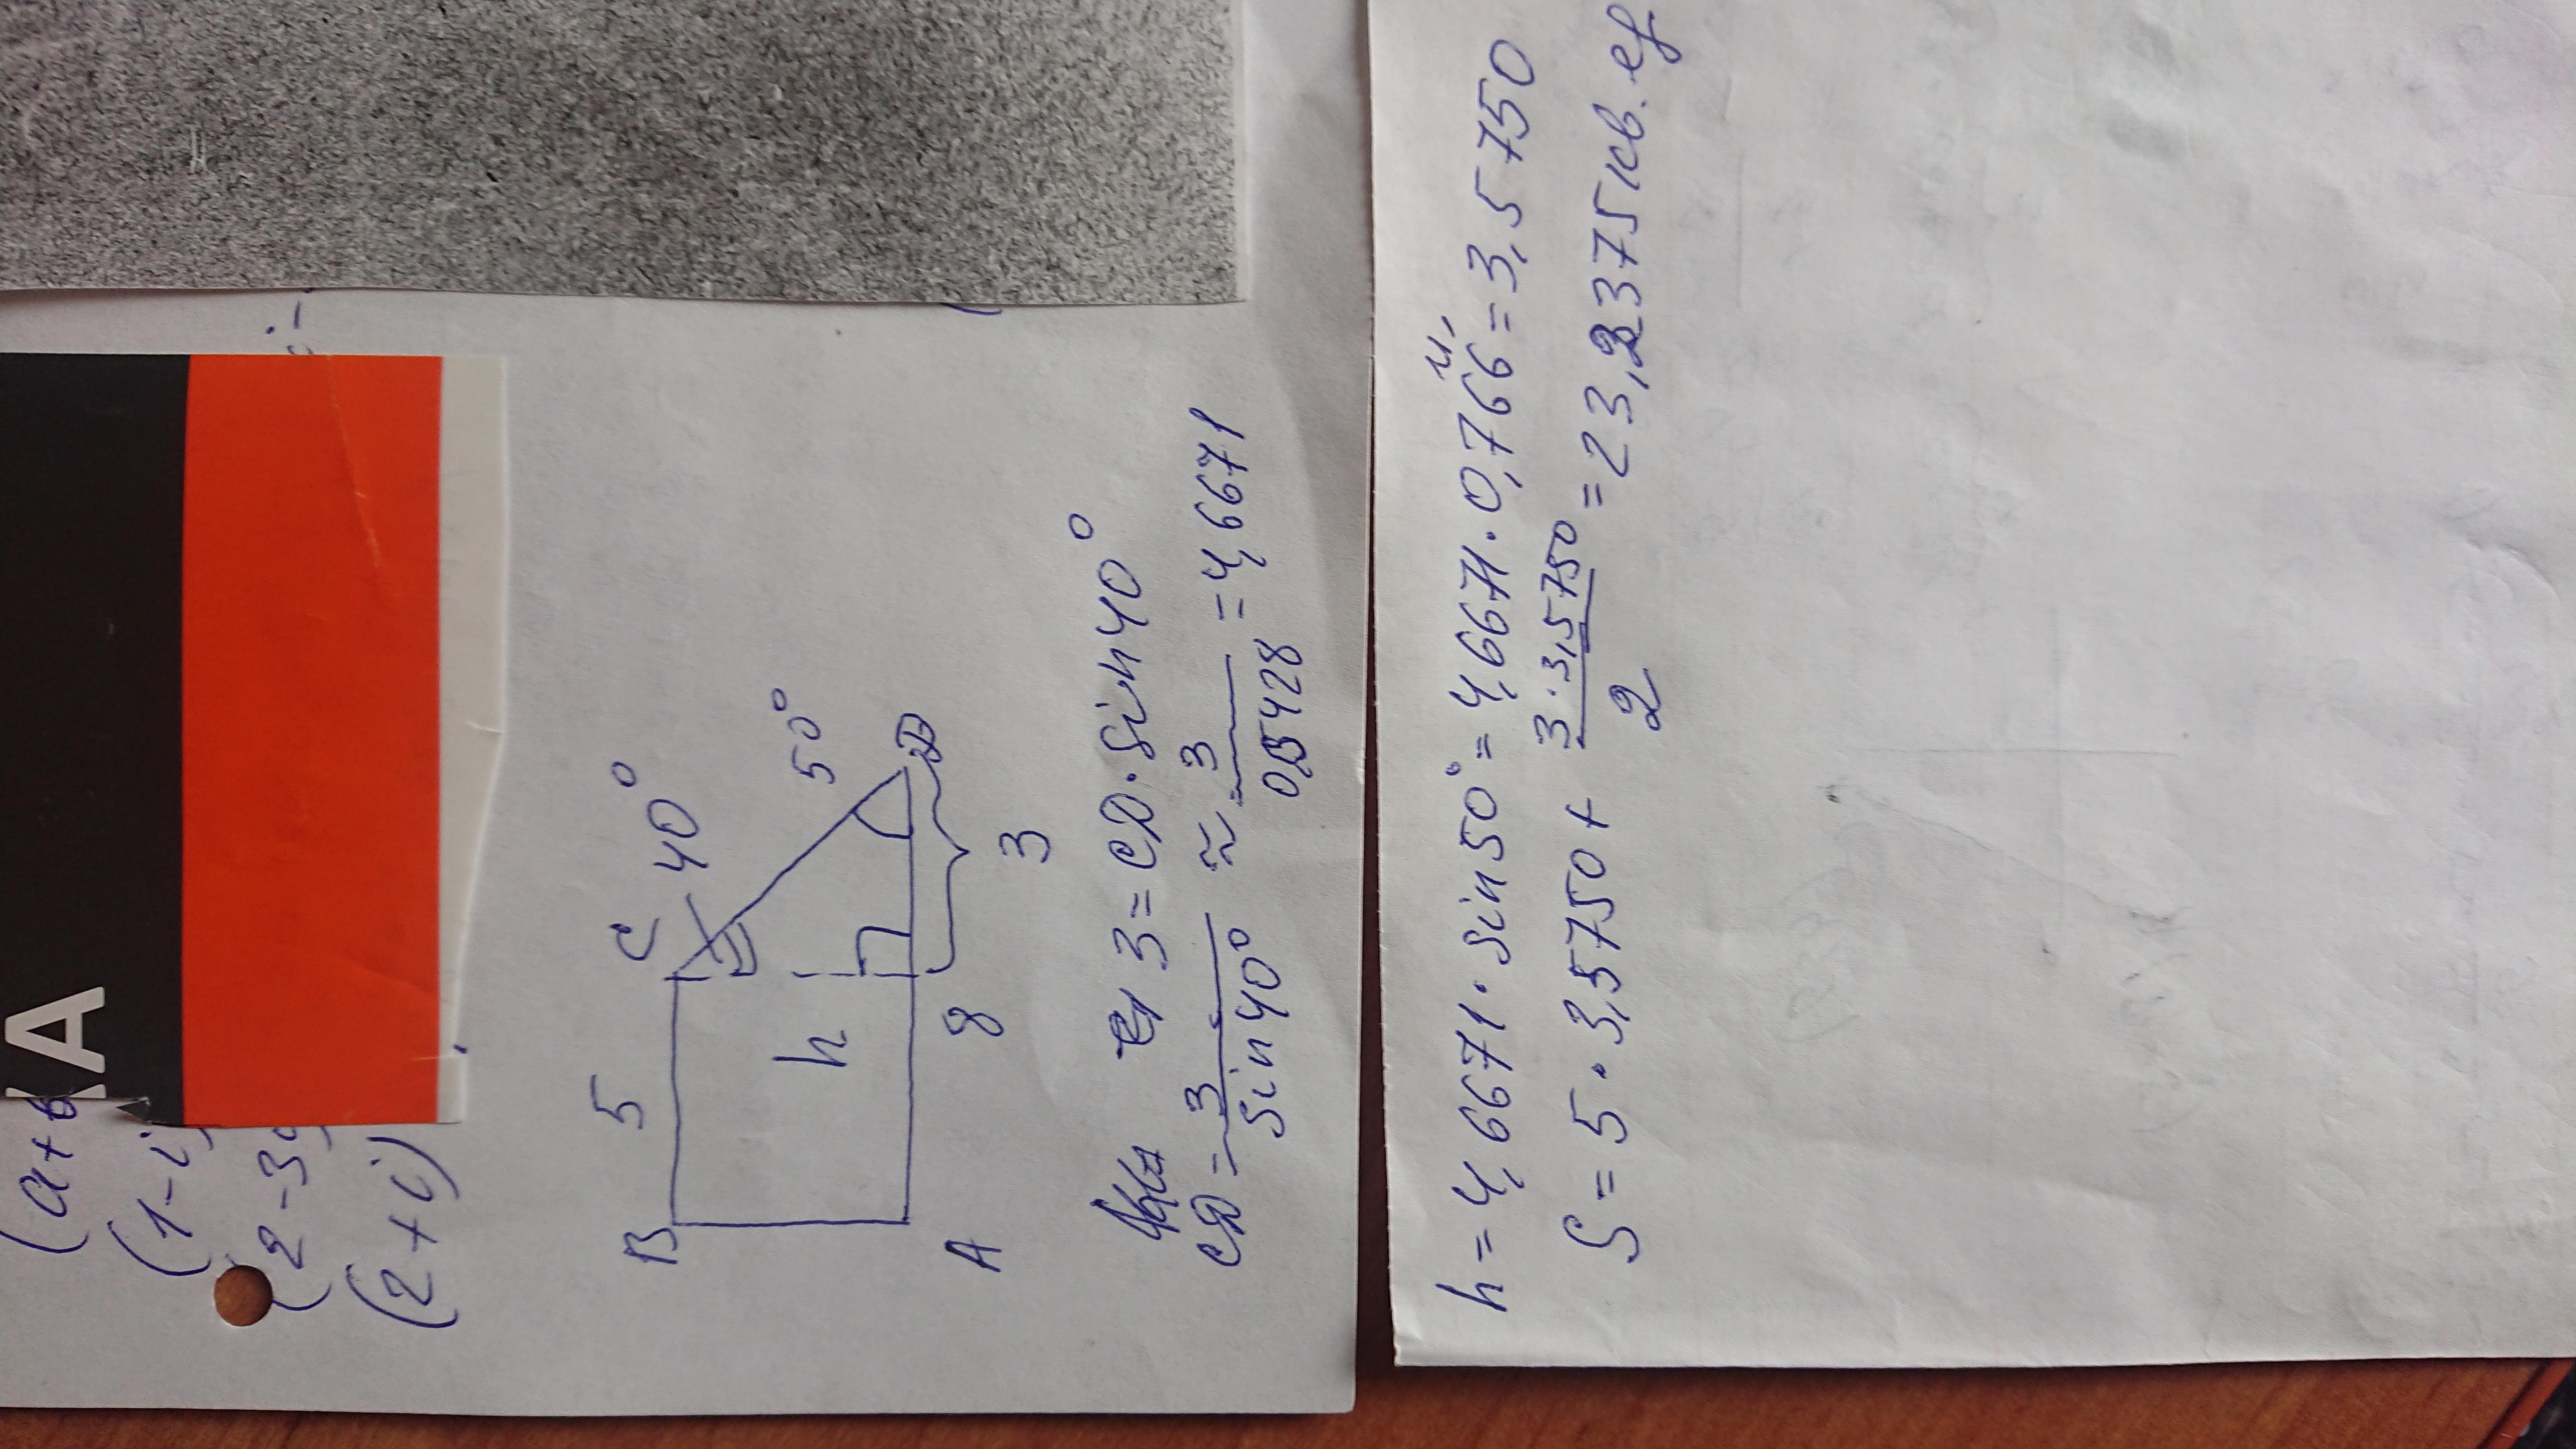 KA
(a+b
(1-i)
(2-3i
(2+i)
B 5 C 40°
h 50°
A 8 D
3
3=CD·Sin40°
CD=3/Sin40° ≈ 3/0,6428=4,6671
h=4,6671·sin50°=4,6671·0,766=3,5750
S=5·3,5750+3·3,5750/2=23,2375кв.ед